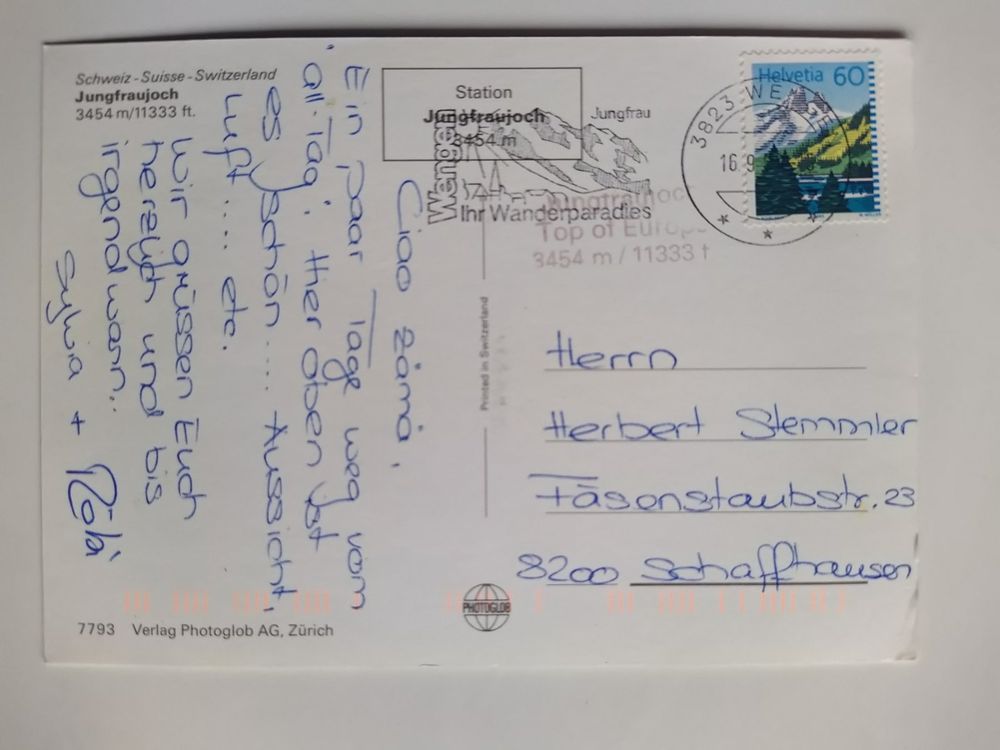 Schweiz - Suisse - Switzerland
Jungfraujoch
3454 m/11333 ft.
Station
Jungfraujoch
3454 m
Wengen
Jungfrau
Ihr Wanderparadies
3823 WE
16.9
Helvetia 60
Top of Europe
3454 m / 11333 f
Ciao zämä,
Ein paar Tage weg vom
all-Tag. Hier oben ist
es schön.... Aussicht,
Luft.... etc.
Wir grüssen Euch
herzlich und bis
irgendwann..
Sylvia + Röbi
Printed in Switzerland
Herrn
Herbert Stemmler
Fäsenstaubstr. 23
8200 Schaffhausen
PHOTOGLOB
7793 Verlag Photoglob AG, Zürich